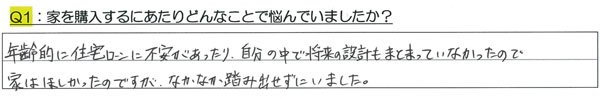 Q1：家を購入するにあたりどんなことで悩んでいましたか？
年齢的に住宅ローンに不安があったり、自分の中で将来の設計もまとまっていなかったので
家はほしかったのですが、なかなか踏み出せずにいました。